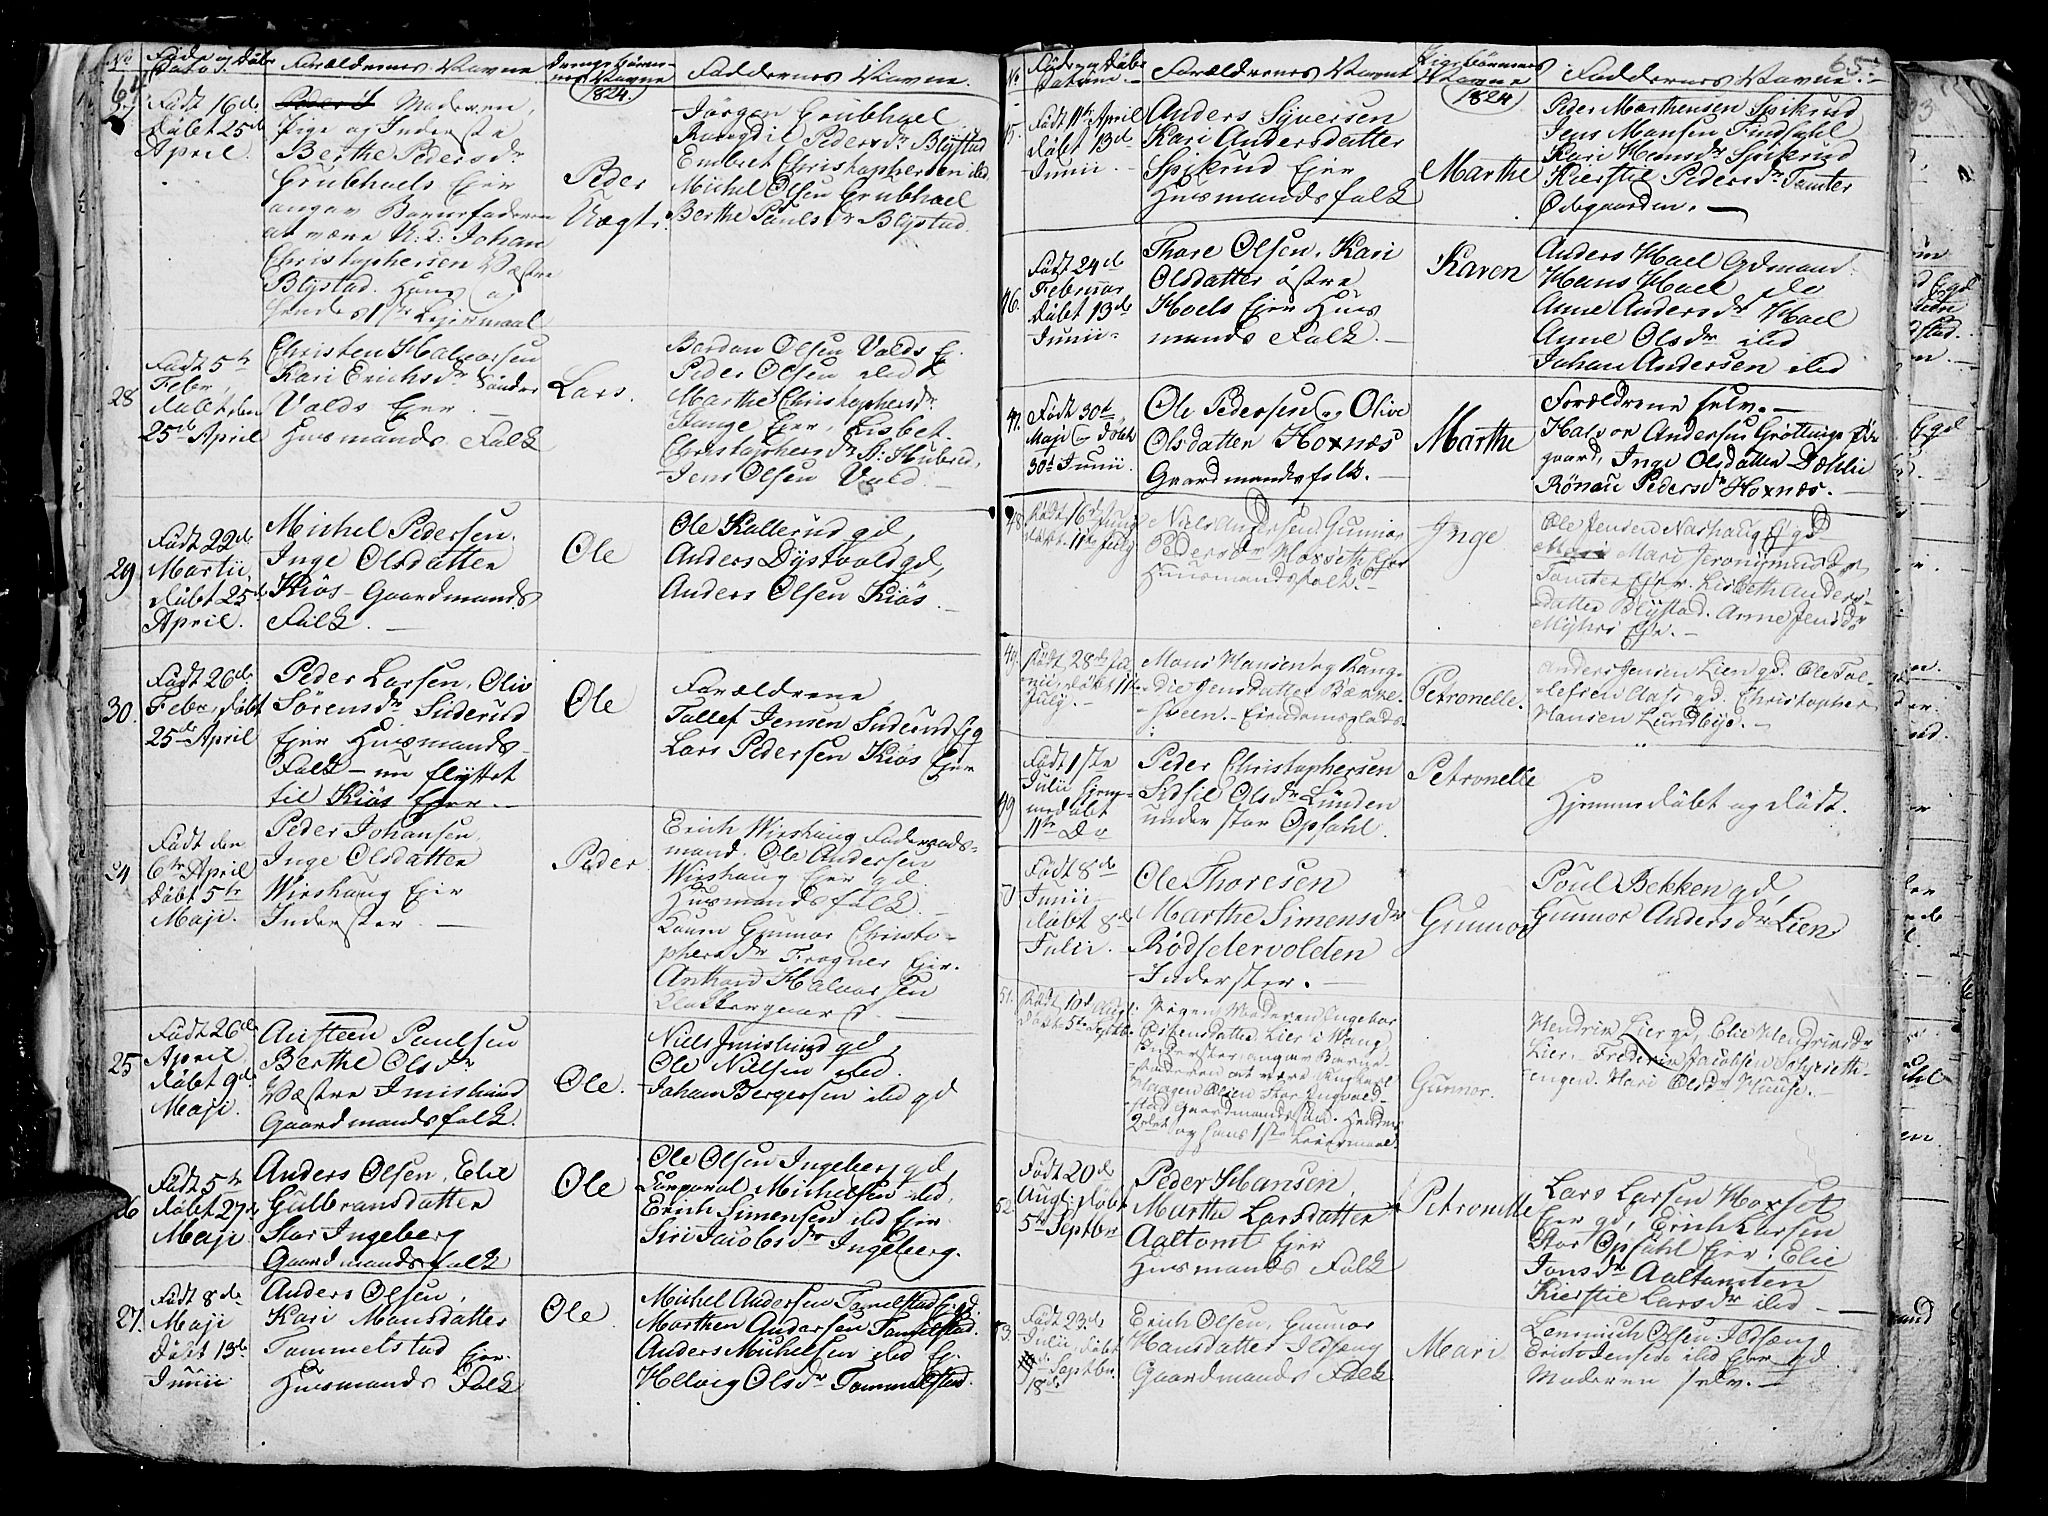 64
No
Føde og Døbe Dato.
Forældrenes Navne
Drenge Børnenes Navne
1824.
Faddernes Navne.
27
Født 16de
Døbt 25de
April.
Moderen,
Pige og Inderste
Berthe Pedersdr
Grubhoels Ejer
angav Barnefaderen
at være U. K: Johan
Christophersen Vestre
Blystad. Hans og
hendes 1ste Lejermaal
Peder
Uægte.
Jørgen Grubhoel
Rangdil Pedersdr Blystad
Embret Christophersen ibd.
Michel Olsen Grubhoel
Berthe Paulsdr Blystad.
28
Født 5te
Febr,
døbt den
25de April
Christen Halvorsen
Kari Erichsdr Sønder
Volds Ejer. —
Huusmands Folk
Lars.
Bordon Olsen Volds Ej.
Peder Olsen ibid
Marthe Christophersdr
Stange Ejer, Lisbet
Christophersdr
Jens Olsen Vold. —
29
Født 22de
Martii,
Døbt 25de
April.
Michel Pedersen.
Inge Olsdatter
Kiøs — Gaardmands
Folk. —
Ole
Ole Kallerud gd,
Anders Dystvold gd,
Anders Olsen Kiøs. —
30.
Født 26de
Febr, døbt
25de April
Peder Larsen, Oliv
Sørensdr Suderud
Ejer Huusmands
Folk — nu flyttet
til Kiøs Ejer. —
Ole
Forældrene
Tollef Jensen Suderud Ejer
Lars Pedersen Kiøs Ejer
24
Født den
6te April
Døbt 5te
Maji.
Peder Johansen
Inge Olsdatter
Wirshaug Ejer
Inderster. —
Peder
Erich Wirshaug Føderaads-
mand. Ole Andersen
Wirshaug Ejer gd.
Huusmands folk. —
Karen Gunnor Christo-
phersdr Frogner Ejer.
Anthon Halvorsen
Klokkergaard. —
25
Født 26de
April
døbt 9de
Maji.
Austeen Paulsen
Berthe Olsdr
Vestre Imislund
Gaardmandsfolk.
Ole.
Niels Imislund gd,
Ole Nielsen ibd.
Johan Bergersen ibd gd
26
Født 5te
døbt 27de
Maji
Anders Olsen, Elie
Gulbransdatter
Stor Ingeberg
Gaardmandsfolk
Ole
Ole Olsen Ingeberg gd,
Corporal Michelsen ibd,
Erich Simensen ibd Ejer.
Siri Jacobsdr Ingeberg.
27.
Født 8de
Maji
Døbt 13de
Junii
Anders Olsen,
Kari Monsdatter
Tommelstad Ejer.
Huusmands Folk
Ole.
Michel Andersen Tomelstad Ej. gd.
Morthen Andersen Tomelstad.
Anders Michelsen ibd Ej.
Helvig Olsdr Tommelstad.
65
No
Føde og Døbe
Datum.
Forældrenes Navne
Pige Børnenes
Navne
1824.
Faddernes Navne.
45
Født 11te April
døbt 13de
Junii —
Anders Syversen
Kari Andersdatter
Spikrud Ejer
Huusmandsfolk
Marthe
Peder Marthensen Spikrud
Jens Monsen Findsahl
Kari Hansdr Spikrud
Kierstie Pedersdr Tomter
Ødegaarden. —
46.
Født 24de
Februar
døbt 13de
Junii —
Thore Olsen, Kari
Olsdatter østre
Hoels Ejer Huus
mands Folk. —
Karen
Anders Hoel Gdmand.
Hans Hoel do
Anne Andersdr Hoel
Anne Olsdr ibd
Johan Andersen ibd
47.
Født 30te
Maji og døbt
30te Junii.
Ole Pedersen og Olive
Olsdatter Hoxnæs
Gaardmandsfolk. —
Marthe
Forældrene selv. —
Halvor Andersen Grøttinge Øde
gaard, Inge Olsdatter Dæhlie
Rønau Pedersdr Hoxnæs. —
48.
Født 16de Junj
døbt 11te July
Niels Andersen, Gunnor
Pedersdr Hoxseth Ejer
Huusmandsfolk. —
Inge
Ole Jensen Narhaug Ej gd
Mari Jeronymusdr
Tomter Ejer. Lisbeth Anders-
datter Blystad. Anne Jensdr
Myhrs Ejer. —
49.
Født 28de Ju-
nii, døbt 11te
July. —
Mons Hansen og Rang-
die Jensdatter Bænne-
sveen. — Eiendomsplads
Petronelle.
Anders Jensen Lien gd. Ole Tol-
lefsen Aas gd. Christopher
Hansen Lundbye. —
49
Født 1ste
Julii hjem-
medøbt
11te Do
Peder Christophersen
Sidsil Olsdr Lunden
under stor Opsahl.
Petronelle
Hjemmedøbt og død.
50
Født 8de
Junii
døbt 8de
Julii.
Ole Thoresen
Marthe Simensdr
Rødsetervolden
Inderster. —
Gunnor
Poul Bekken gd,
Gunnor Andersdr Lien
51.
Født 10de Aug.
døbt 5te Septbr.
Pigen, Moderen Ingebor
Lier i Vang
Inderster, angav Barne-
faderen at være Ungkarl
Haagen Olsen Stor Ingvold-
stad Gaardmands søn. Hendes
2det og hans 1ste Leiermaal
Gunnor.
Hendrik Lier gd, Elie Hendriksdr
Lier. Frederik Jacobsen
engen. Kari Olsdr Kuuse. —
52.
Født 20de
Aug: døbt
5te Septbr
Peder Hansen,
Marthe Larsdatter
Aaltomt Ejer
Huusmands Folk
Petronelle
Lars Larsen Hoxset
Ejer gd, Erich Larsen
Stor Opsahl Ejer. Elie
Jonsdr Aaltomten
Kierstie Larsdr ibd —
53.
Født 23de
Julii, døbt
Septbr.
18de
Erich Olsen, Gunnor
Hansdatter Ildseng
Gaardmands Folk
Mari
Lemmich Olsen Ildseng
Erich Jensen ibd Ejer gd
Moderen selv. —